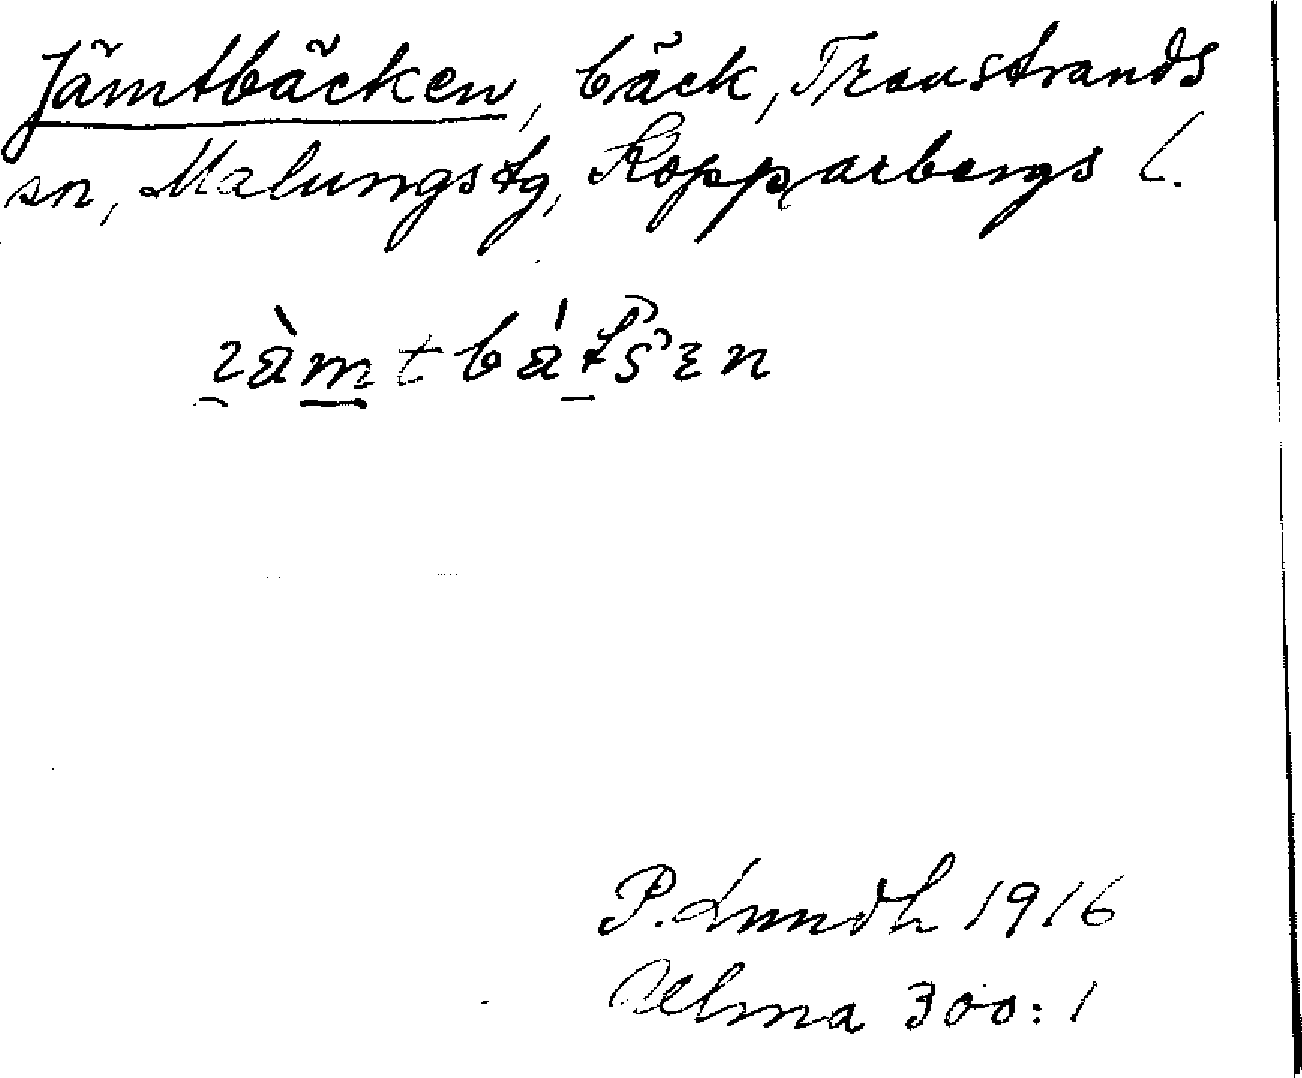 Jämtbäcken, bäck, Transtrands
sn, Malungs tg, Kopparbergs l.
P. Lundh 1916
Ulma 300:1